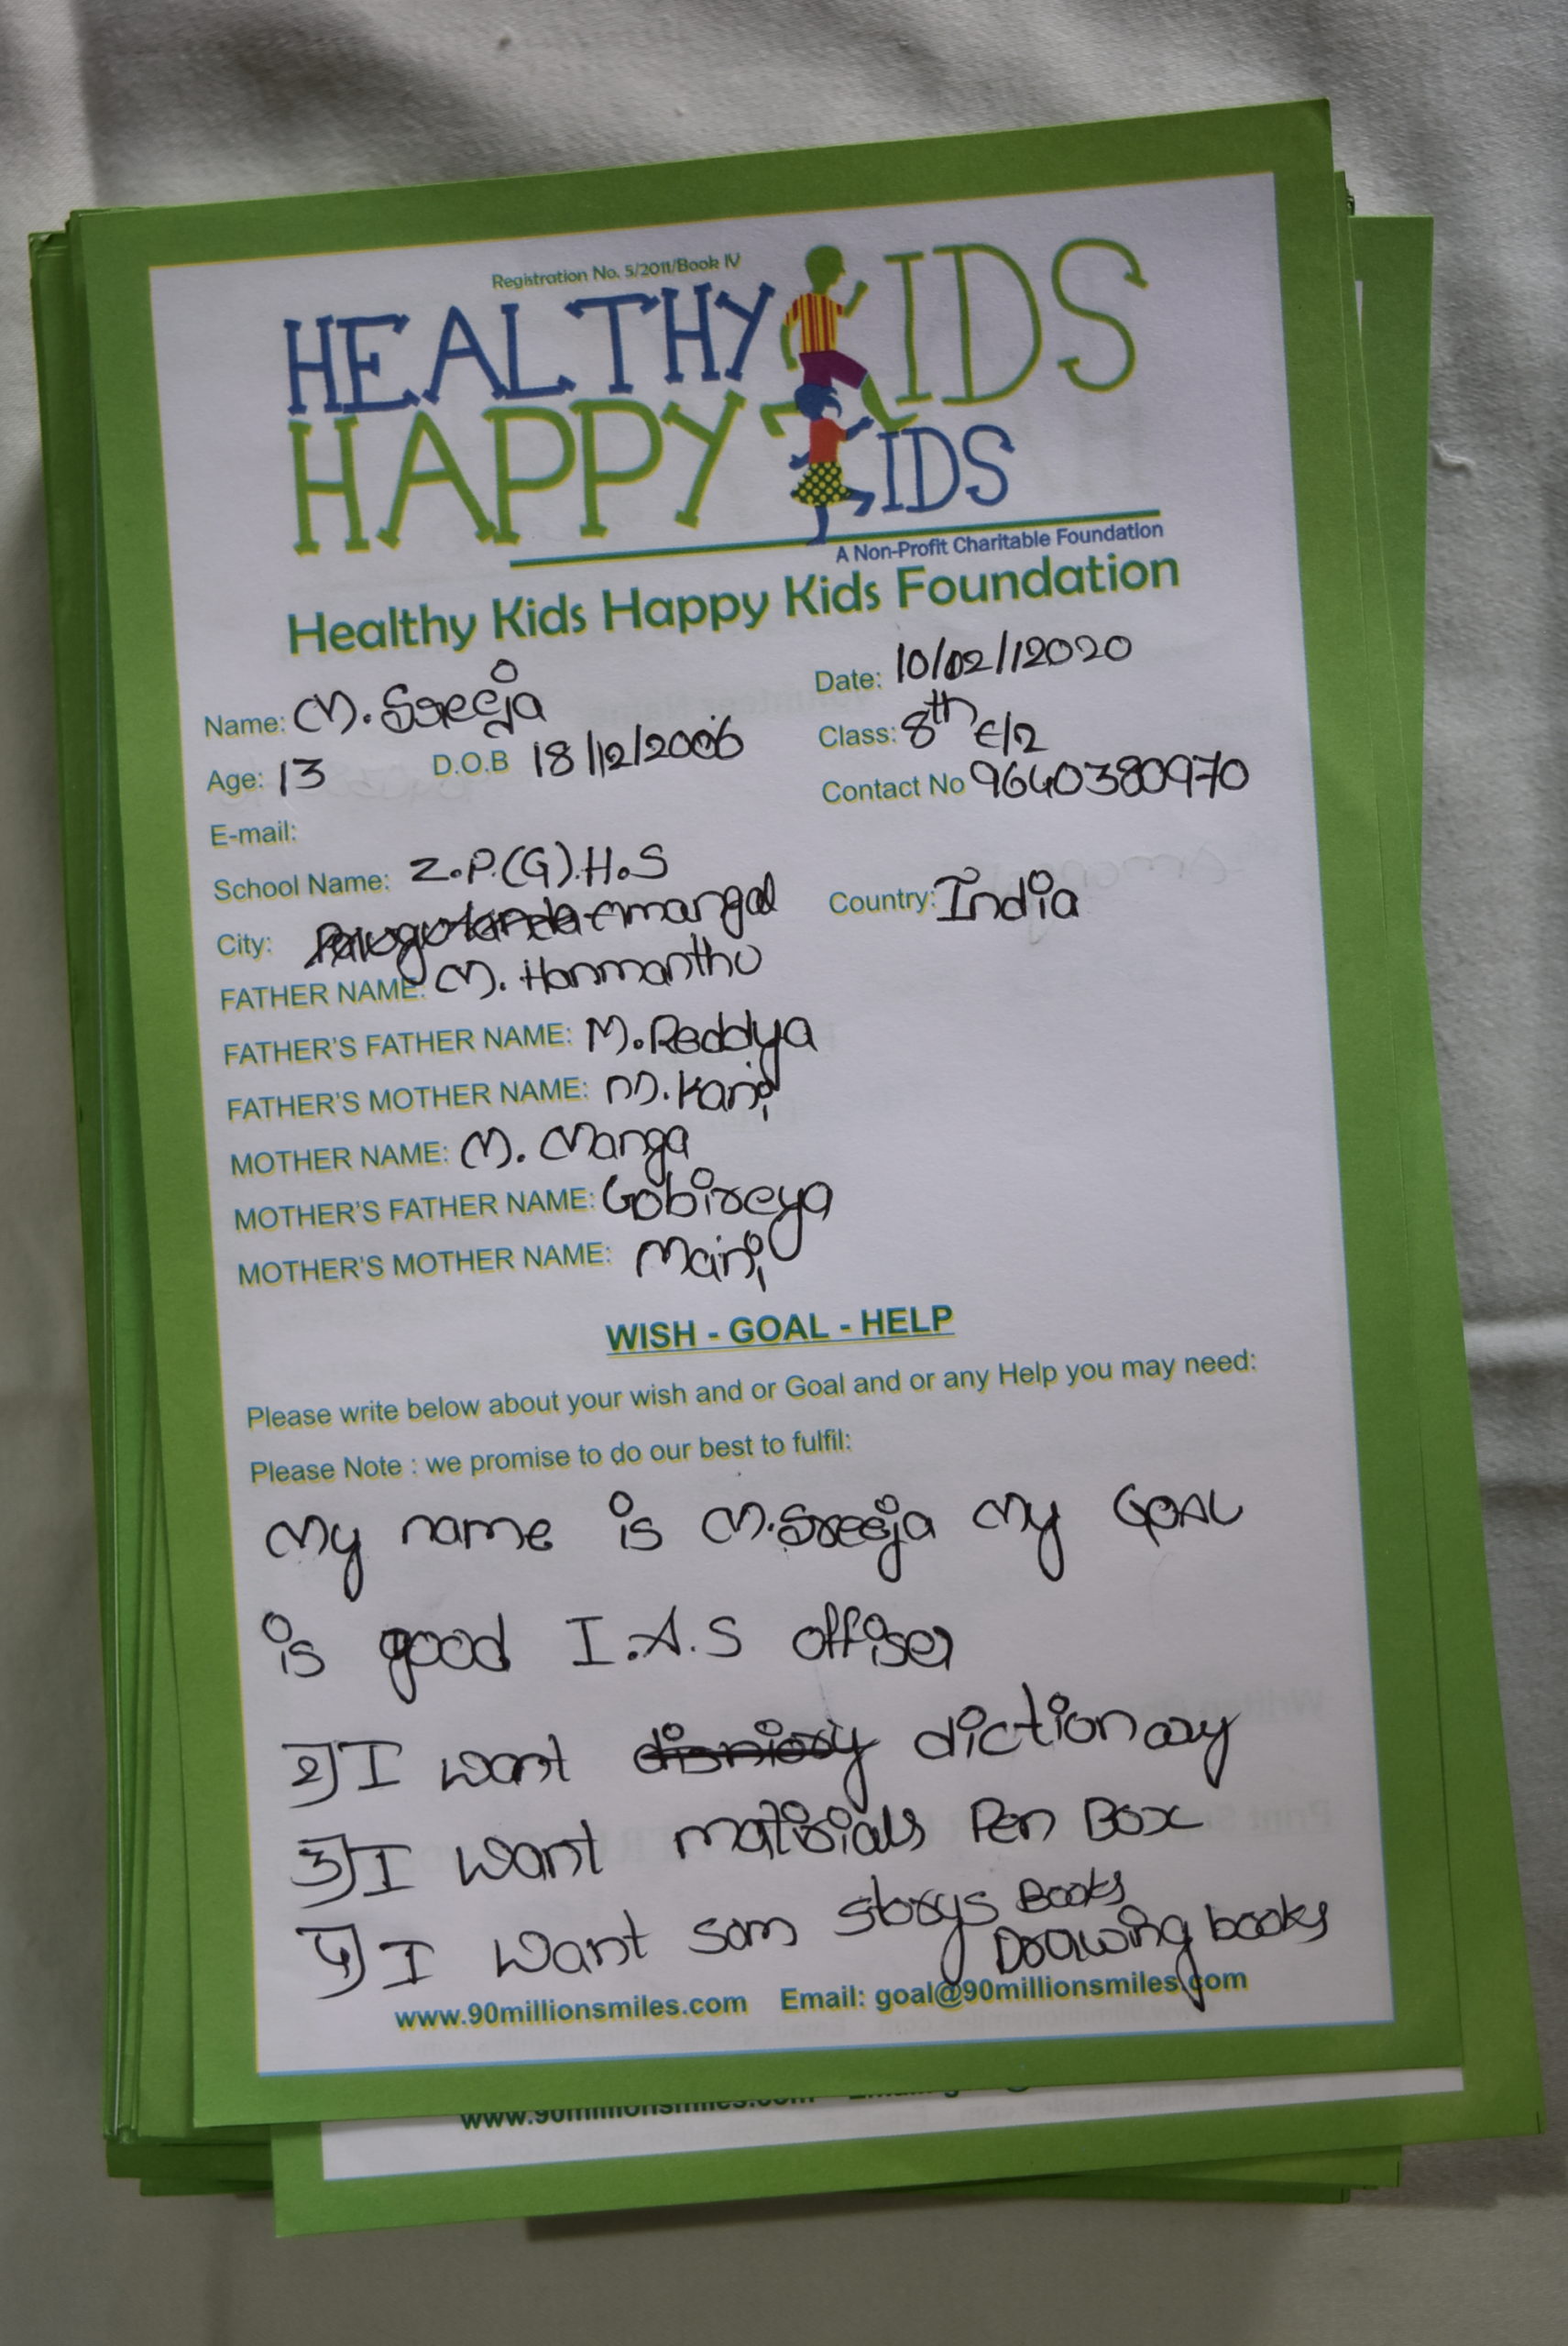 Registration No. 5/2011/Book IV
HEALTHY KIDS
HAPPY KIDS
A Non-Profit Charitable Foundation
Healthy Kids Happy Kids Foundation
Name: M. Sreeja Date: 10/02/12020
Age: 13 D.O.B 18/12/2006 Class: 8th E/2
E-mail: Contact No 9640380970
School Name: Z.P.(G).H.S
City: Amangal Country: India
FATHER NAME: M. Hanmanthu
FATHER'S FATHER NAME: M. Reddya
FATHER'S MOTHER NAME: M. Kani
MOTHER NAME: M. Manga
MOTHER'S FATHER NAME: Gobireya
MOTHER'S MOTHER NAME:
WISH - GOAL - HELP
Please write below about your wish and or Goal and or any Help you may need:
Please Note : we promise to do our best to fulfil:
My name is M. Sreeja My GOAL
is good I.A.S offiser
2) I want disniory dictionary
3) I want matirials Pen Box
4) I want som storys Books
Drawing books
www.90millionsmiles.com Email: goal@90millionsmiles.com
www.90millionsmiles.com